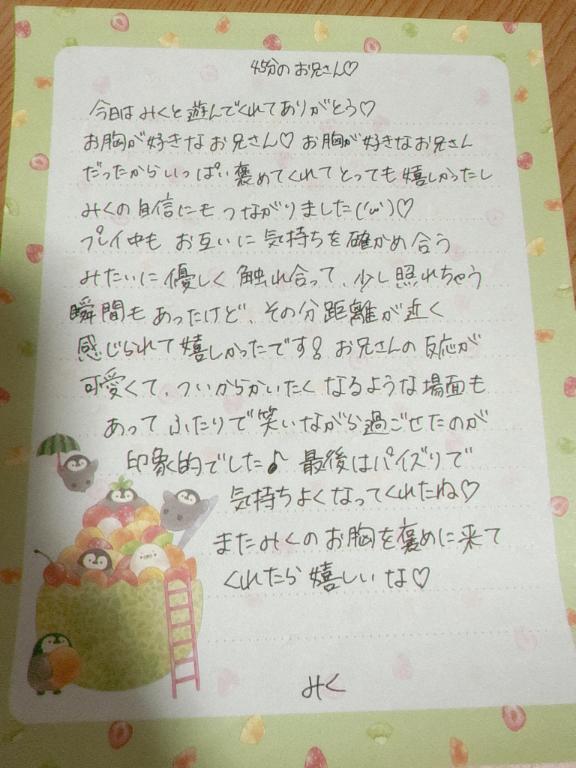 45分のお兄さん♡
今日はみくと遊んでくれてありがとう♡
お胸が好きなお兄さん♡ お胸が好きなお兄さん
だったからいっぱい褒めてくれてとっても嬉しかったし
みくの自信にもつながりました(‘ω’)♡
プレイ中も お互いに気持ちを確かめ合う
みたいに優しく触れ合って、少し照れちゃう
瞬間もあったけど、その分距離が近く
感じられて嬉しかったです! お兄さんの反応が
可愛くて、ついからかいたくなるような場面も
あって ふたりで笑いながら過ごせたのが
印象的でした♪ 最後はパイズリで
気持ちよくなってくれたね♡
またみくのお胸を褒めに来て
くれたら嬉しいな♡
みく